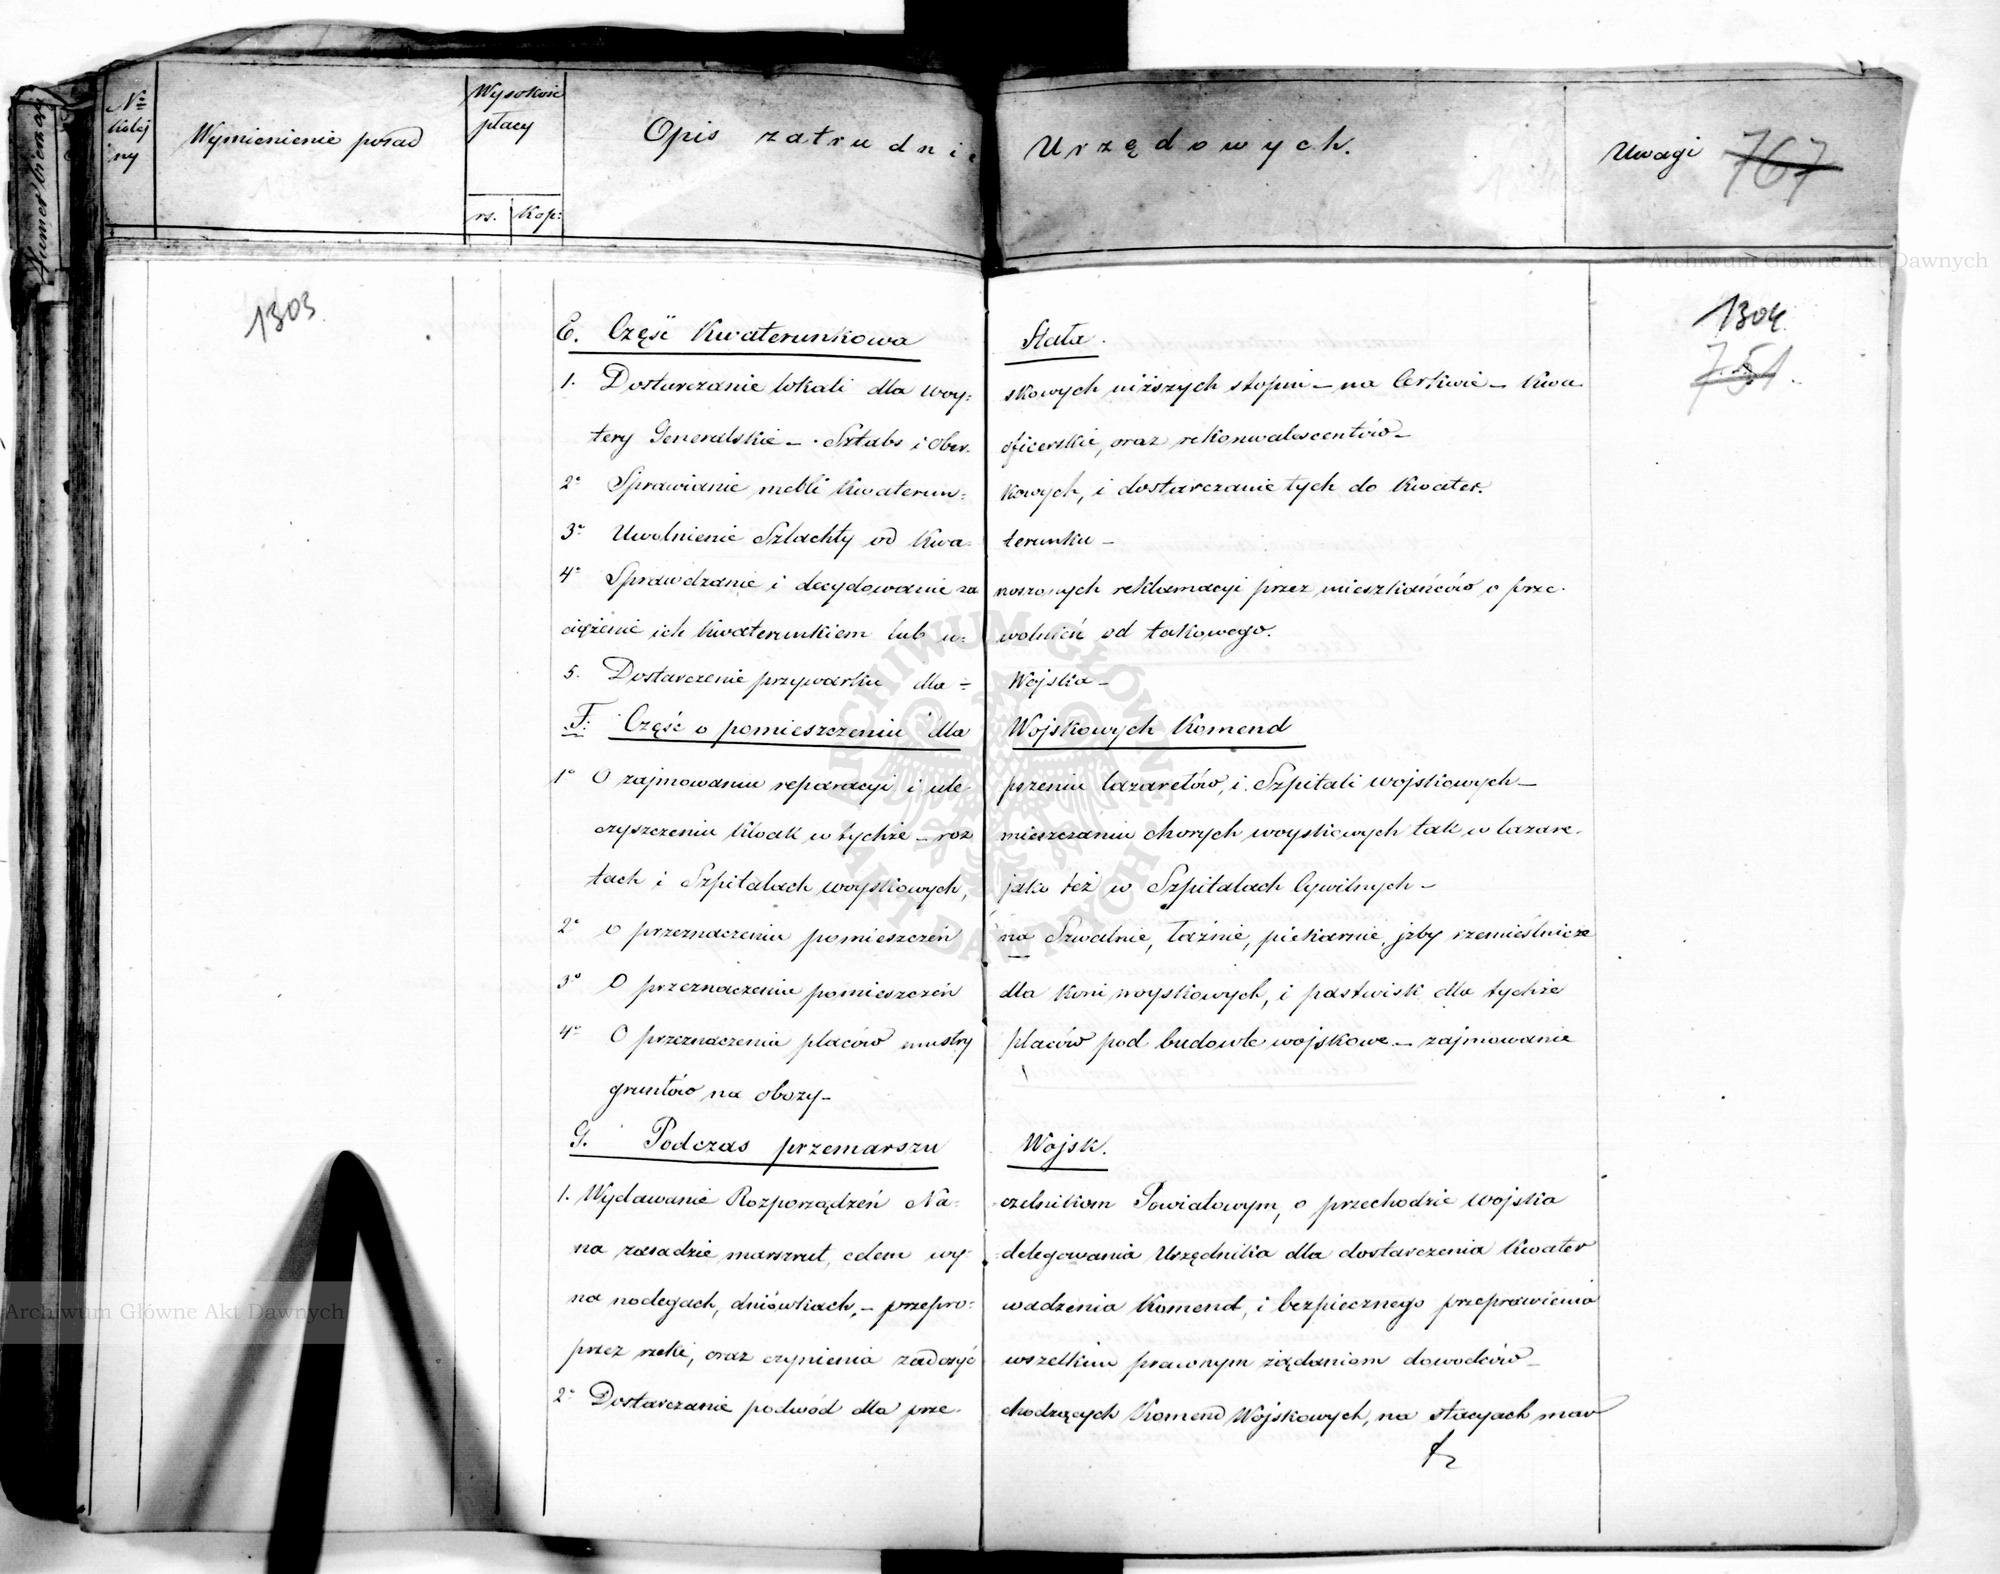 Numer bieżący
No kolejny
Wymienienie posad
Wysokość płacy
rs. Kop:
Opis zatrudnie Urzędowych.
Uwagi
767
1303
1304
751
E. Część Kwaterunkowa Stała.
1. Dostarczanie lokali dla woy= skowych niższych stopni – na Cerkwie – Kwa
tery Generalskie – Sztabs i Ober. oficerskie, oraz rekonwalescentów –
2o Sprawianie mebli Kwaterun= kowych, i dostarczanie tych do Kwater.
3o Uwolnienie Szlachty od Kwa= terunku –
4o Sprawdzanie i decydowanie za noszonych reklamacyi przez mieszkańców o prze.
ciążenie ich Kwaterunkiem lub u= wolnień od takowego.
5. Dostarczenie przywarku dla = Wojska –
F. Część o pomieszczeniu dla Wojskowych Komend
1o O zajmowaniu reparacyi i ule pszeniu lazaretów, i Szpitali wojskowych –
czyszczeniu kloak w tychże – roz mieszczaniu chorych woyskowych tak w lazare.
tach i Szpitalach woyskowych, jako też w Szpitalach Cywilnych –
2o o przeznaczeniu pomieszczeń na Szwalnie, łaźnie, piekarnie, izby rzemieślnicze
3o O przeznaczeniu pomieszczeń dla koni woyskowych, i pastwisk dla tychże
4o O przeznaczeniu placów mustry placów pod budowle wojskowe – zajmowanie
gruntów na obozy –
G. Podczas przemarszu Wojsk.
1. Wydawanie Rozporządzeń Na= czelnikom Powiatowym, o przechodzie wojska
na zasadzie marszrut, celem wy= delegowania Urzędnika dla dostarczenia Kwater
na noclegach, dniówkach, – przepro= wadzenia Komend, i bezpiecznego przeprawienia
przez rzeki, oraz czynienia zadosyć wszelkim prawnym żądaniom dowódców –
2o Dostarczanie podwód dla prze. chodzących Komend Wojskowych, na stacyach mar
Archiwum Główne Akt Dawnych
Archiwum Główne Akt Dawnych
ARCHIWUM GŁÓWNE AKT DAWNYCH